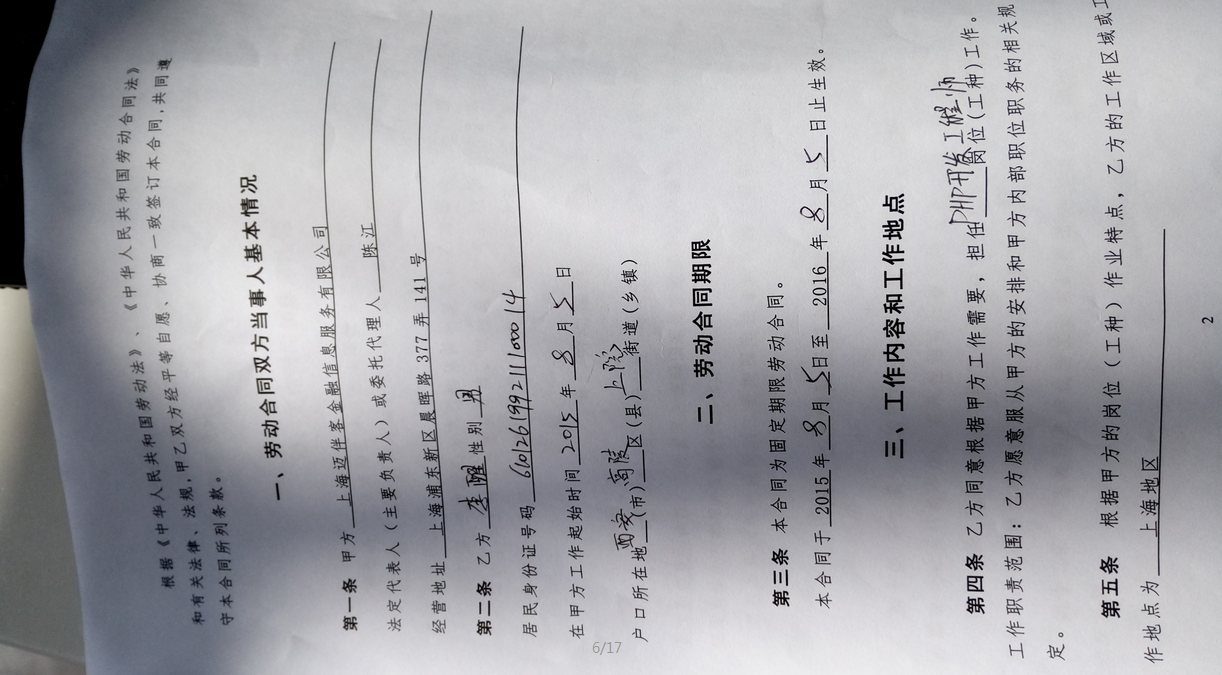 根据《中华人民共和国劳动法》、《中华人民共和国劳动合同法》
和有关法律、法规,甲乙双方经平等自愿、协商一致签订本合同,共同遵
守本合同所列条款。
一、劳动合同双方当事人基本情况
第一条 甲方 上海迈伴客金融信息服务有限公司
法定代表人(主要负责人)或委托代理人 陈江
经营地址 上海浦东新区晨晖路 377 弄 141 号
第二条 乙方 李 性别 男
居民身份证号码 610126199211110014
在甲方工作起始时间 2015 年 8 月 5 日
户口所在地 西安 (市) 高陵 区(县) 上院 街道(乡镇)
二、劳动合同期限
第三条 本合同为固定期限劳动合同。
本合同于 2015 年 8 月 5 日至 2016 年 8 月 5 日止生效。
三、工作内容和工作地点
第四条 乙方同意根据甲方工作需要,担任 PHP开发工程师 岗位(工种)工作。
工作职责范围:乙方愿意服从甲方的安排和甲方内部职位职务的相关规
定。
第五条 根据甲方的岗位(工种)作业特点,乙方的工作区域或工
作地点为 上海地区
2
6/17